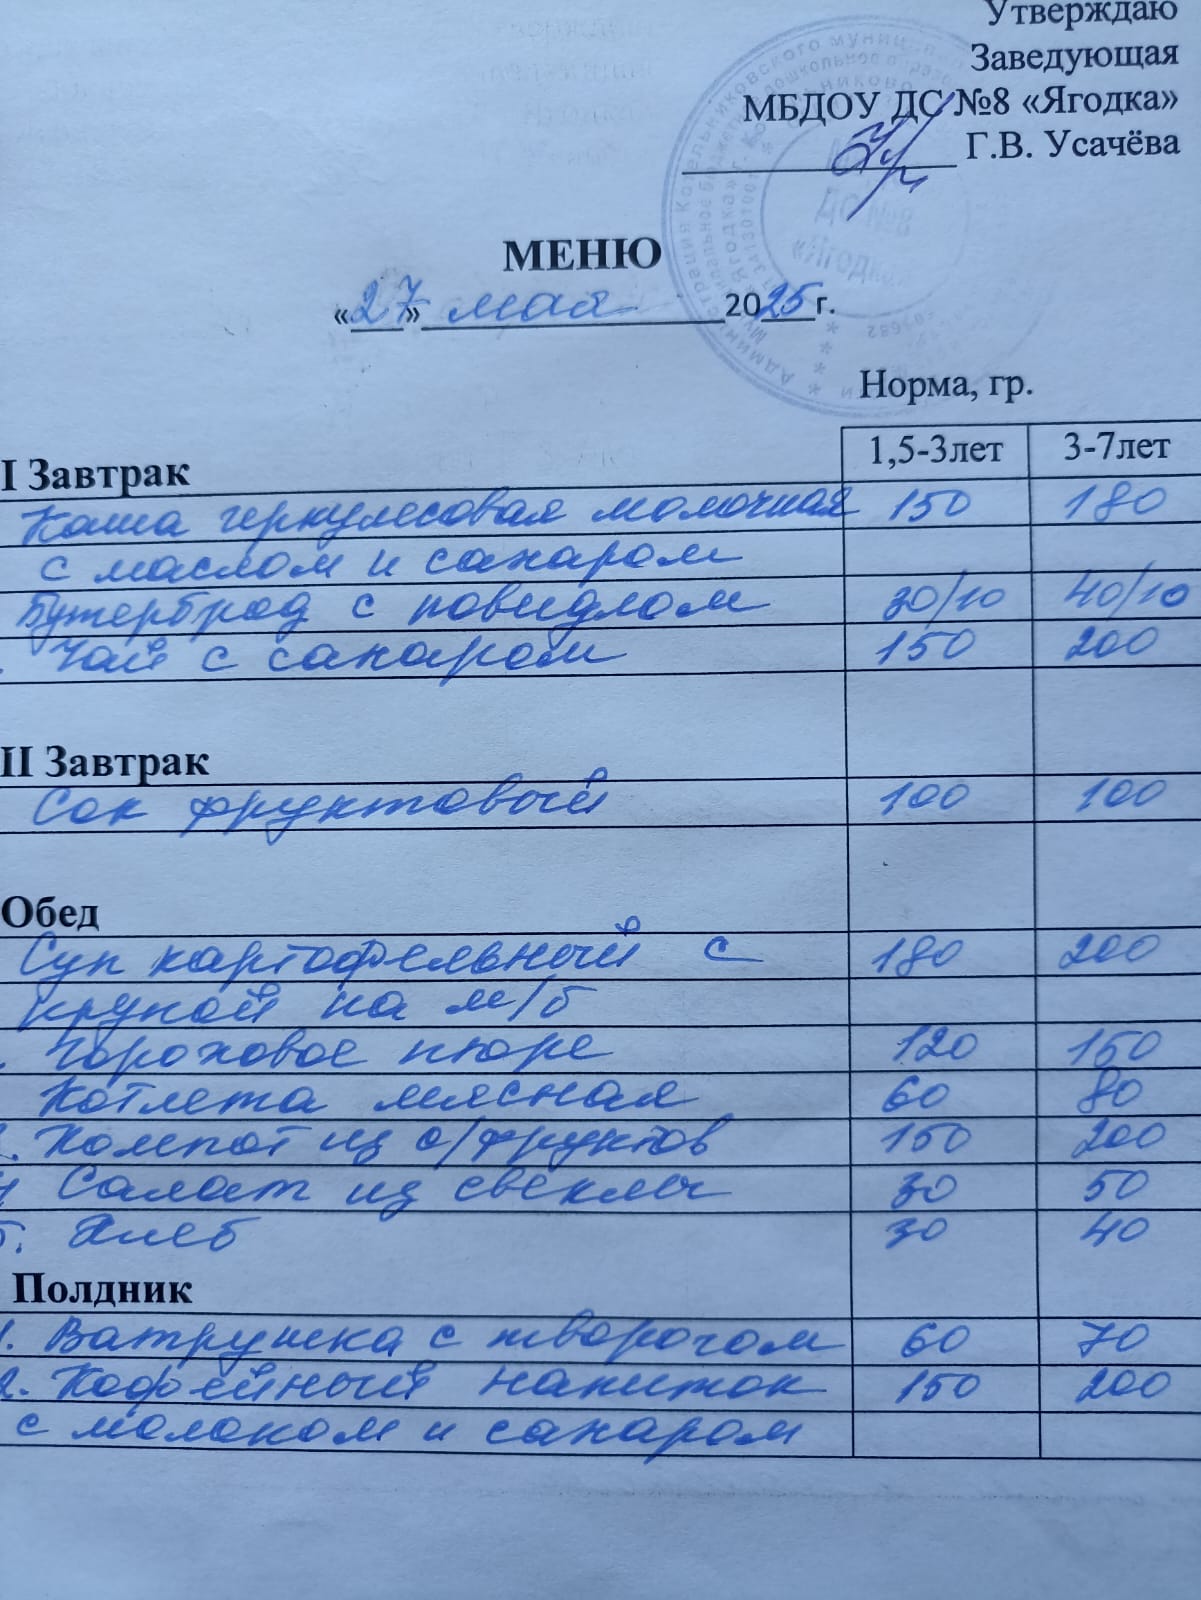 Утверждаю
Заведующая
МБДОУ ДС №8 «Ягодка»
Г.В. Усачёва
ДС №8
«Ягодка»
МЕНЮ
«27» мая 2025 г.
Норма, гр.
1,5-3лет 3-7лет
I Завтрак
Каша геркулесовая молочная 150 180
с маслом и сахаром
Бутерброд с повидлом 30/10 40/10
Чай с сахаром 150 200
II Завтрак
Сок фруктовый 100 100
Обед
Суп картофельный с 180 200
крупой на м/б
Гороховое пюре 120 150
Котлета мясная 60 80
Компот из с/фруктов 150 200
Салат из свеклы 30 50
5. Хлеб 30 40
Полдник
1. Ватрушка с творогом 60 70
2. Кофейный напиток 150 200
с молоком и сахаром